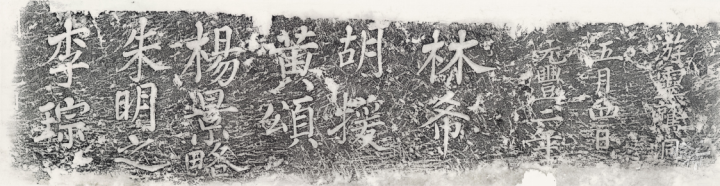 李琮
朱明之
楊景略
黃頌
胡援
林希
元豐二年
五月四日
游靈隱洞